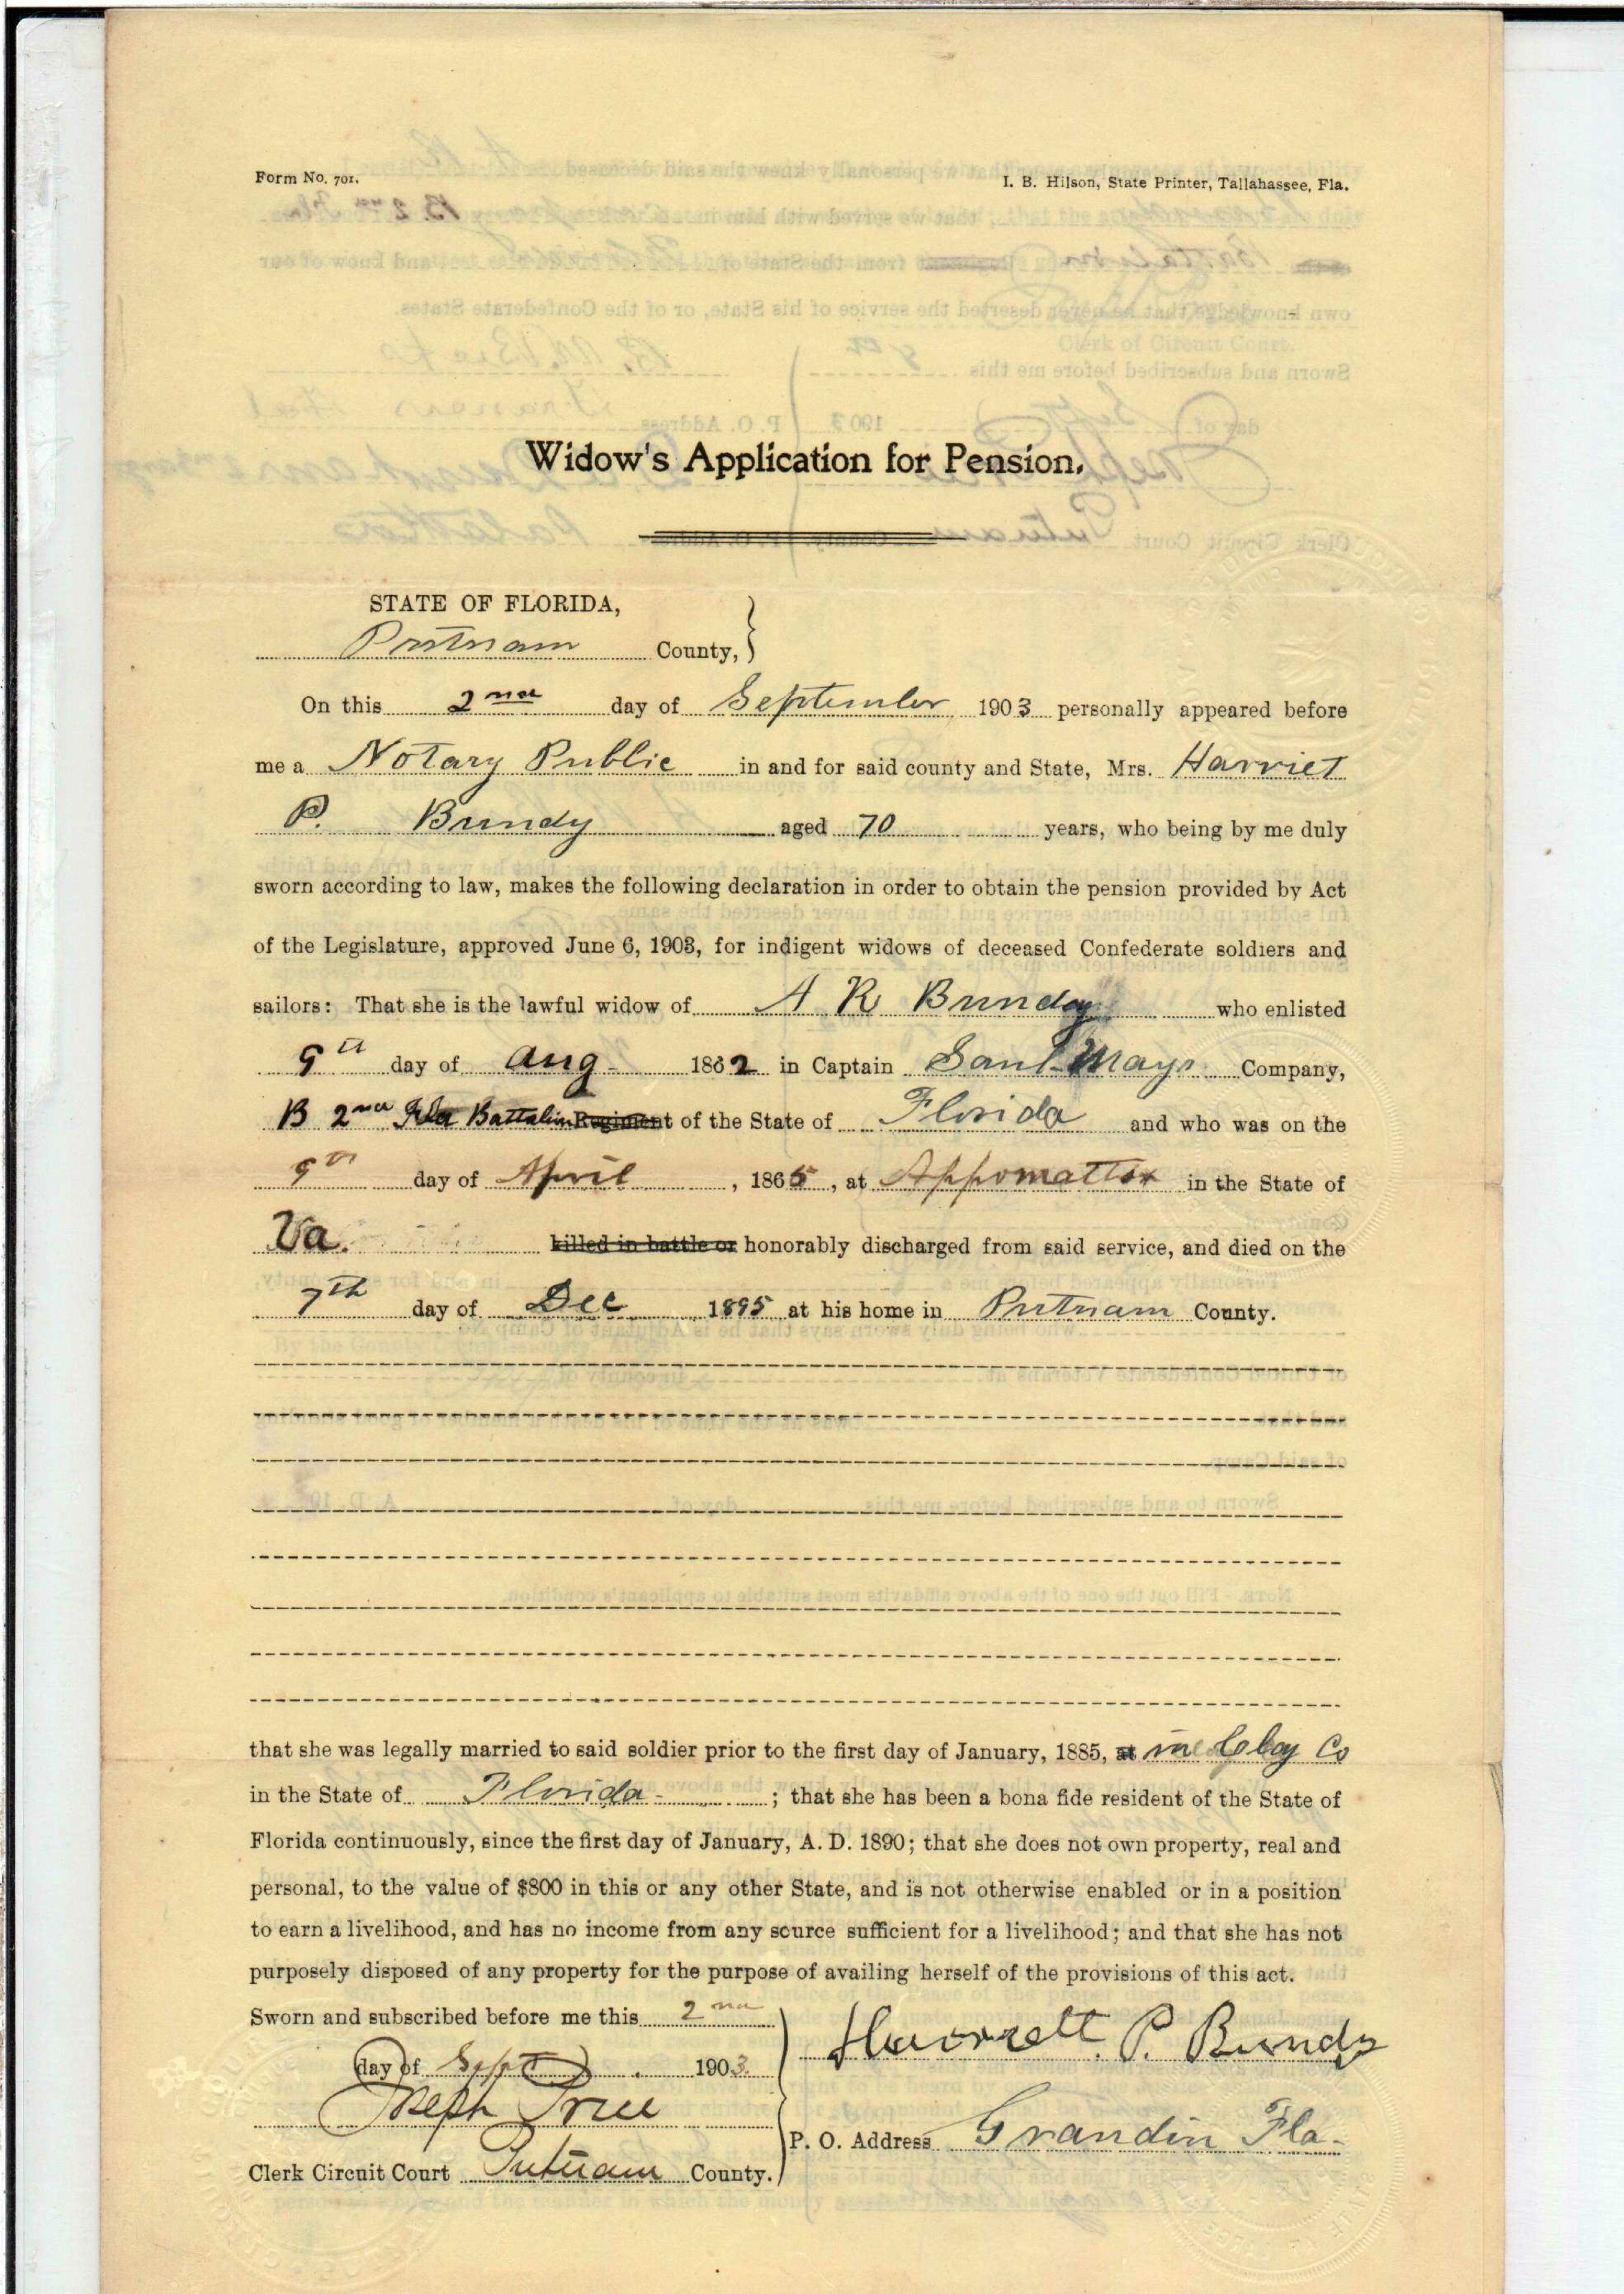 Form No. 701.
I. B. Hilson, State Printer, Tallahassee, Fla.
Widow's Application for Pension.
STATE OF FLORIDA,
Putnam County,
On this 2nd day of September 1903 personally appeared before
me a Notary Public in and for said county and State, Mrs. Harriet
P. Bundy aged 70 years, who being by me duly
sworn according to law, makes the following declaration in order to obtain the pension provided by Act
of the Legislature, approved June 6, 1903, for indigent widows of deceased Confederate soldiers and
sailors: That she is the lawful widow of A R Bundy who enlisted
9th day of Aug 1862 in Captain Saml Mays Company,
B 2nd Fla Battalion Regiment of the State of Florida and who was on the
9th day of April, 1865, at Appomattox in the State of
Va. killed in battle or honorably discharged from said service, and died on the
7th day of Dec 1895 at his home in Putnam County.
that she was legally married to said soldier prior to the first day of January, 1885, at in Clay Co
in the State of Florida; that she has been a bona fide resident of the State of
Florida continuously, since the first day of January, A. D. 1890; that she does not own property, real and
personal, to the value of $800 in this or any other State, and is not otherwise enabled or in a position
to earn a livelihood, and has no income from any source sufficient for a livelihood; and that she has not
purposely disposed of any property for the purpose of availing herself of the provisions of this act.
Sworn and subscribed before me this 2nd
day of Sept 1903.
Harriett. P. Bundy
Joseph Price
P. O. Address Grandin Fla.
Clerk Circuit Court Putnam County.